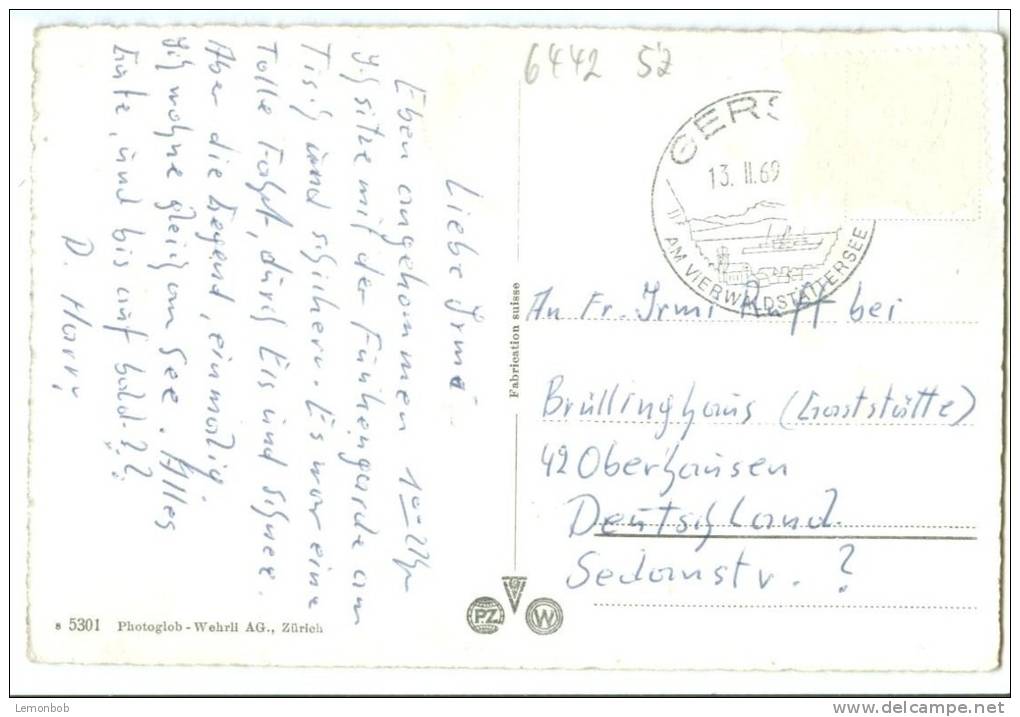 6442 SZ
GERS
13. II. 69
AM VIERWALDSTÄTTERSEE
Liebe Irmi
Eben angekommen 1⁰⁰ Uhr
Ich sitze mit der Führengarde am
Tisch und schihern. Es war eine
Tolle Fahrt, durch Eis und Schnee.
Aber die Gegend, einmalig.
Ich wohne gleich am See. Alles
Gute, und bis auf bald??
D. Harri
An Fr. Irmi Rupp bei
Brüllinghaus (Gaststätte)
42 Oberhausen
Deutschland.
Sedanstr. ?
Fabrication suisse
8 5301 Photoglob-Wehrli AG., Zürich
P.Z.
W
Lemonbob
www.delcampe.net